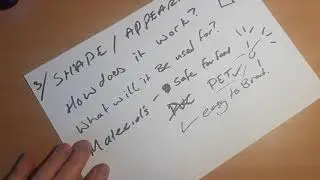 3/ SHAPE / APPEAR
How does it work?
What will it be used for?
Materials - safe for food
PVC PETV
✓ easy to Bond!